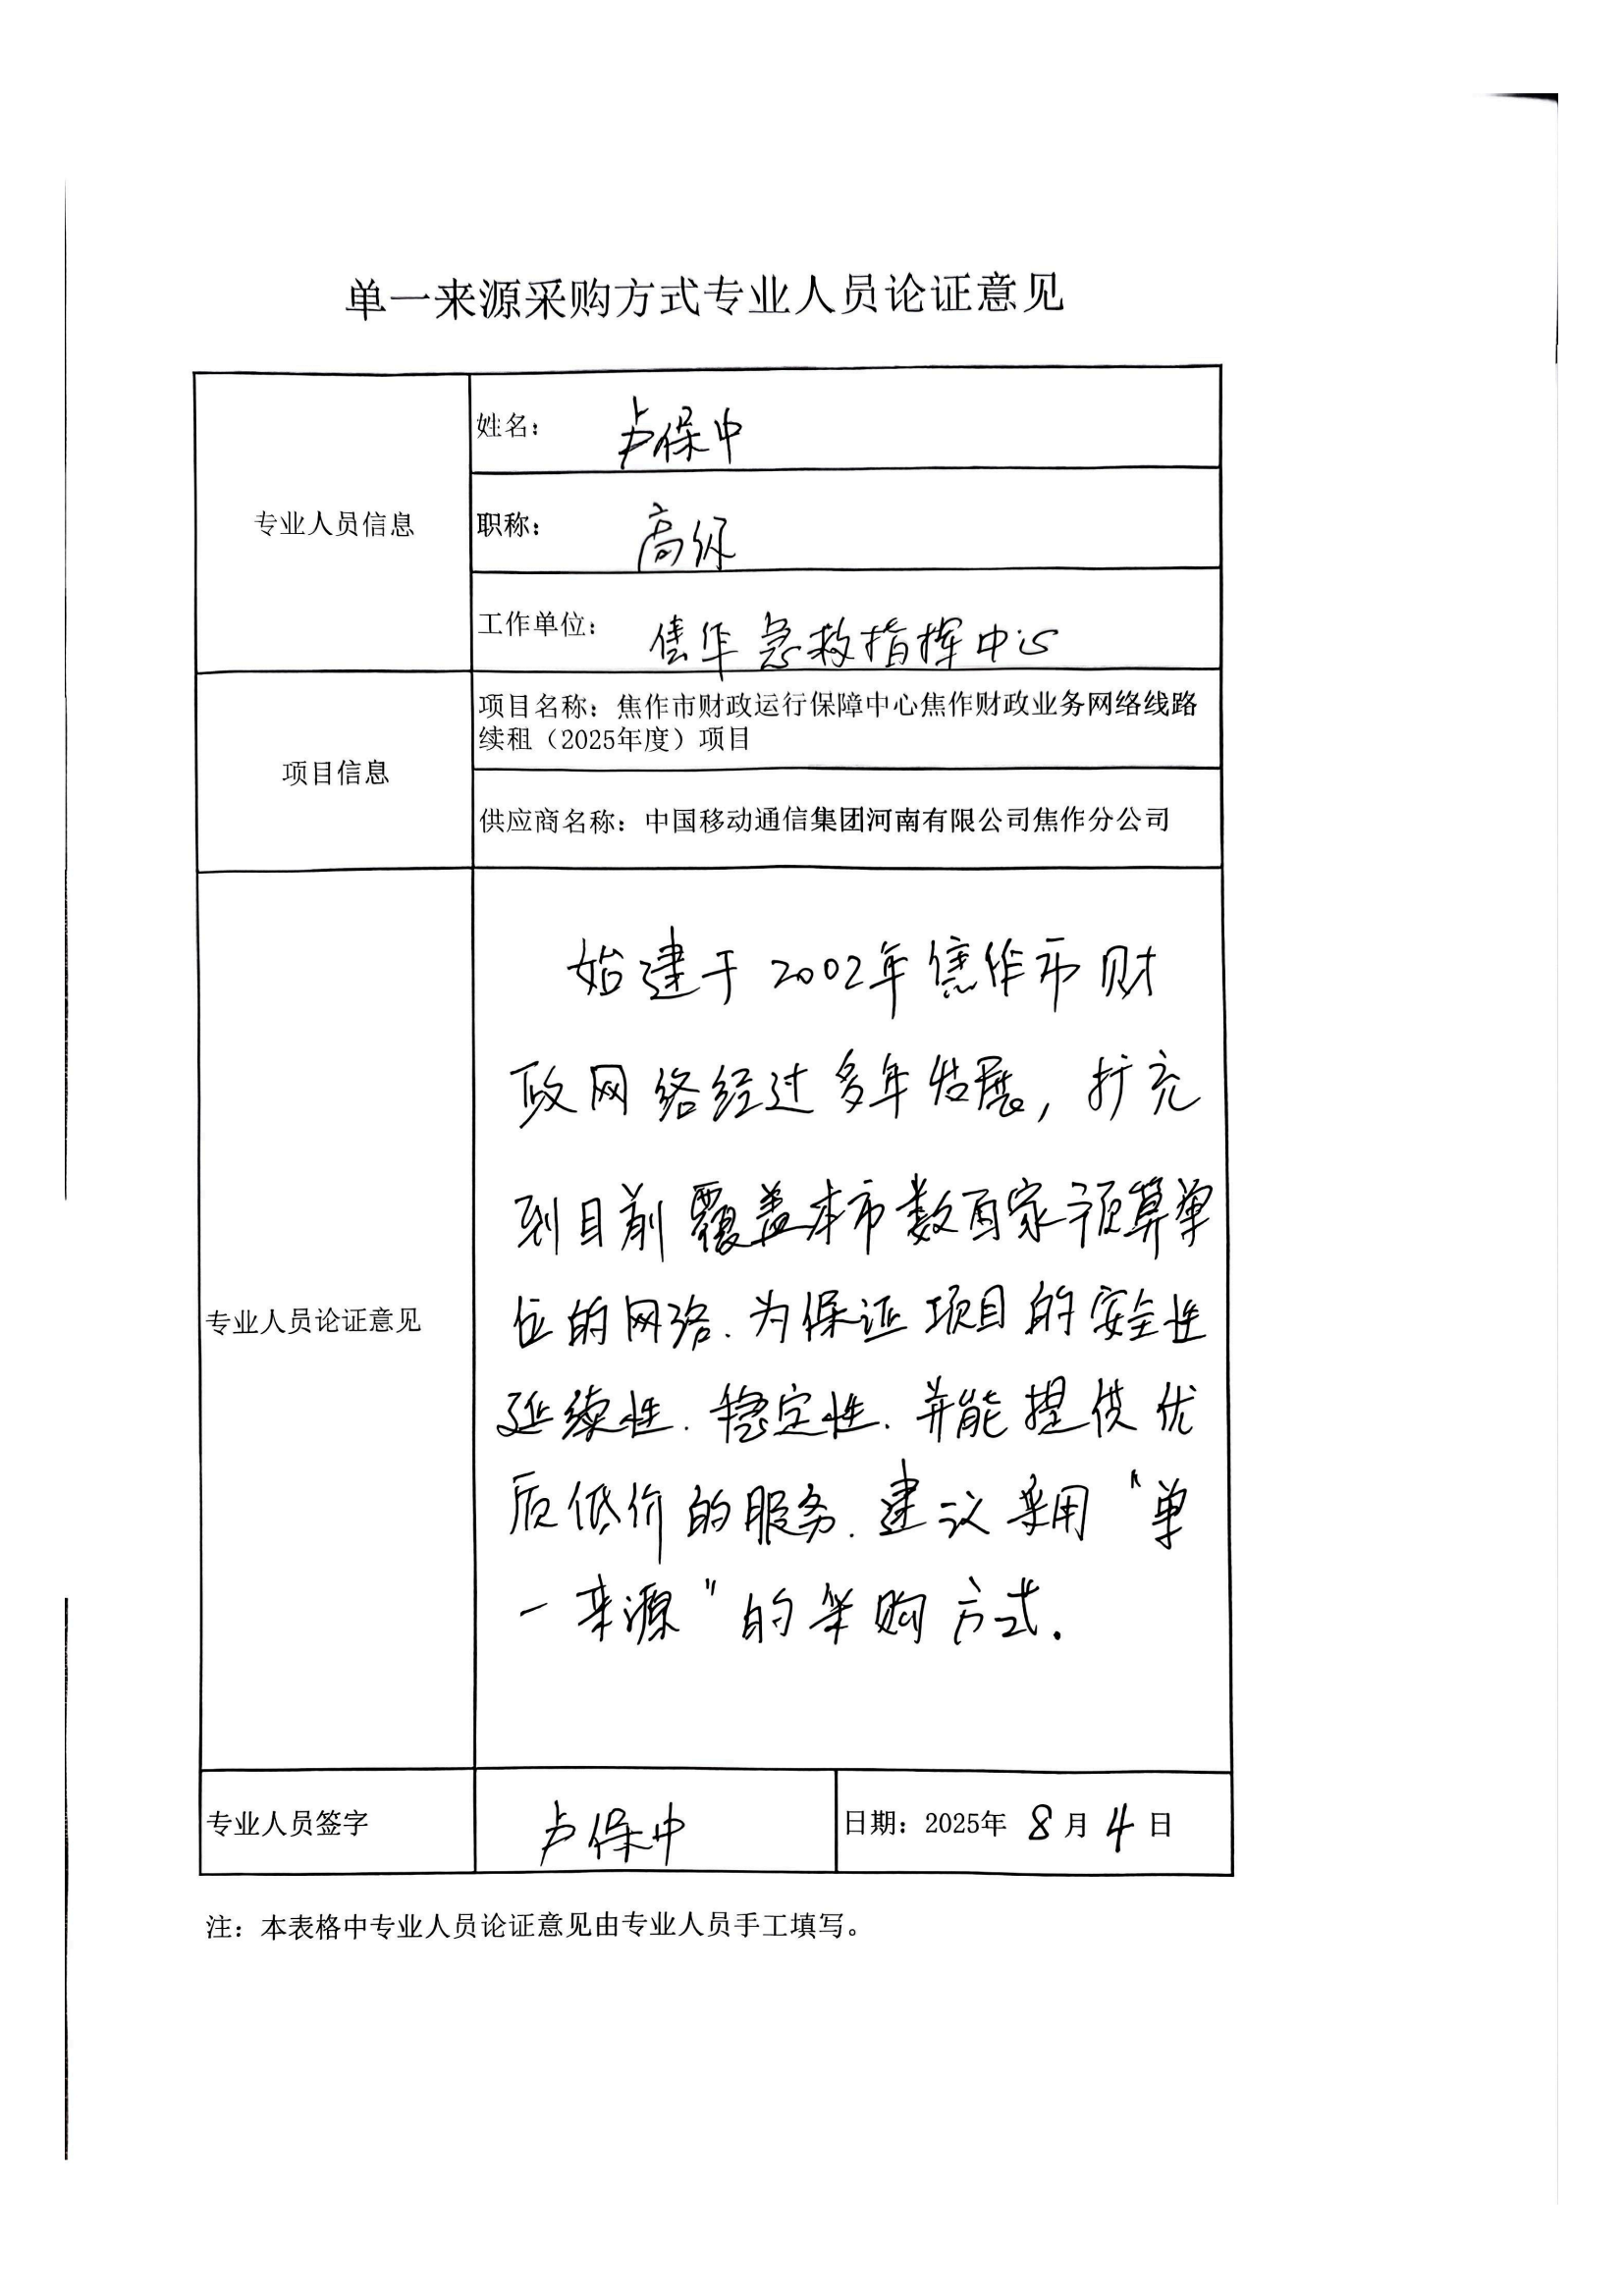 单一来源采购方式专业人员论证意见
专业人员信息
姓名：卢保中
职称：高级
工作单位：焦作急救指挥中心
项目信息
项目名称：焦作市财政运行保障中心焦作财政业务网络线路
续租（2025年度）项目
供应商名称：中国移动通信集团河南有限公司焦作分公司
专业人员论证意见
始建于2002年焦作市财
政网络经过多年发展，扩充
到目前覆盖本市数百家预算单
位的网络.为保证项目的安全性
延续性.稳定性.并能提供优
质低价的服务.建议采用“单
一来源”的采购方式.
专业人员签字
卢保中
日期：2025年 8 月 4 日
注：本表格中专业人员论证意见由专业人员手工填写。